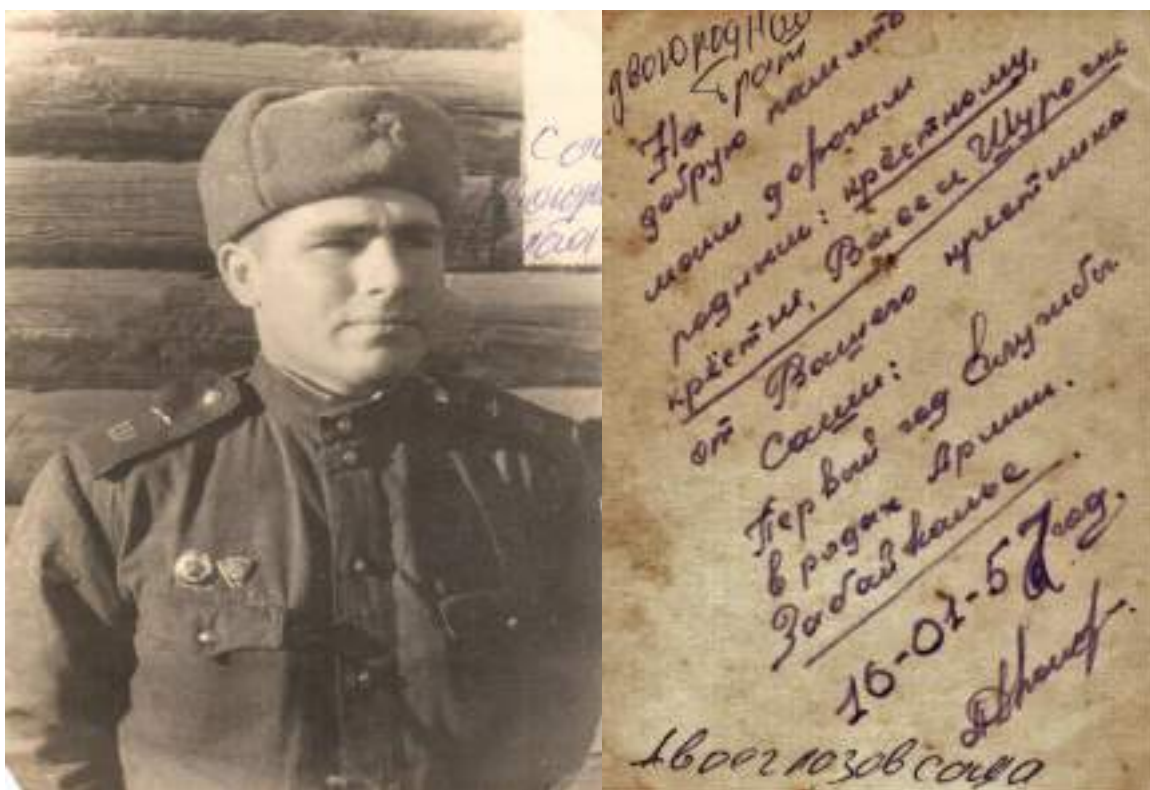 двоюродной
брат
На
добрую память
моим дорогим
родным: крёстному,
крёстне, Васе и Шурочке
от Вашего крестника
Саши:
Первый год службы
в рядах Армии.
Забайкалье.
16-01-57 год.
Двоеглазов Саша